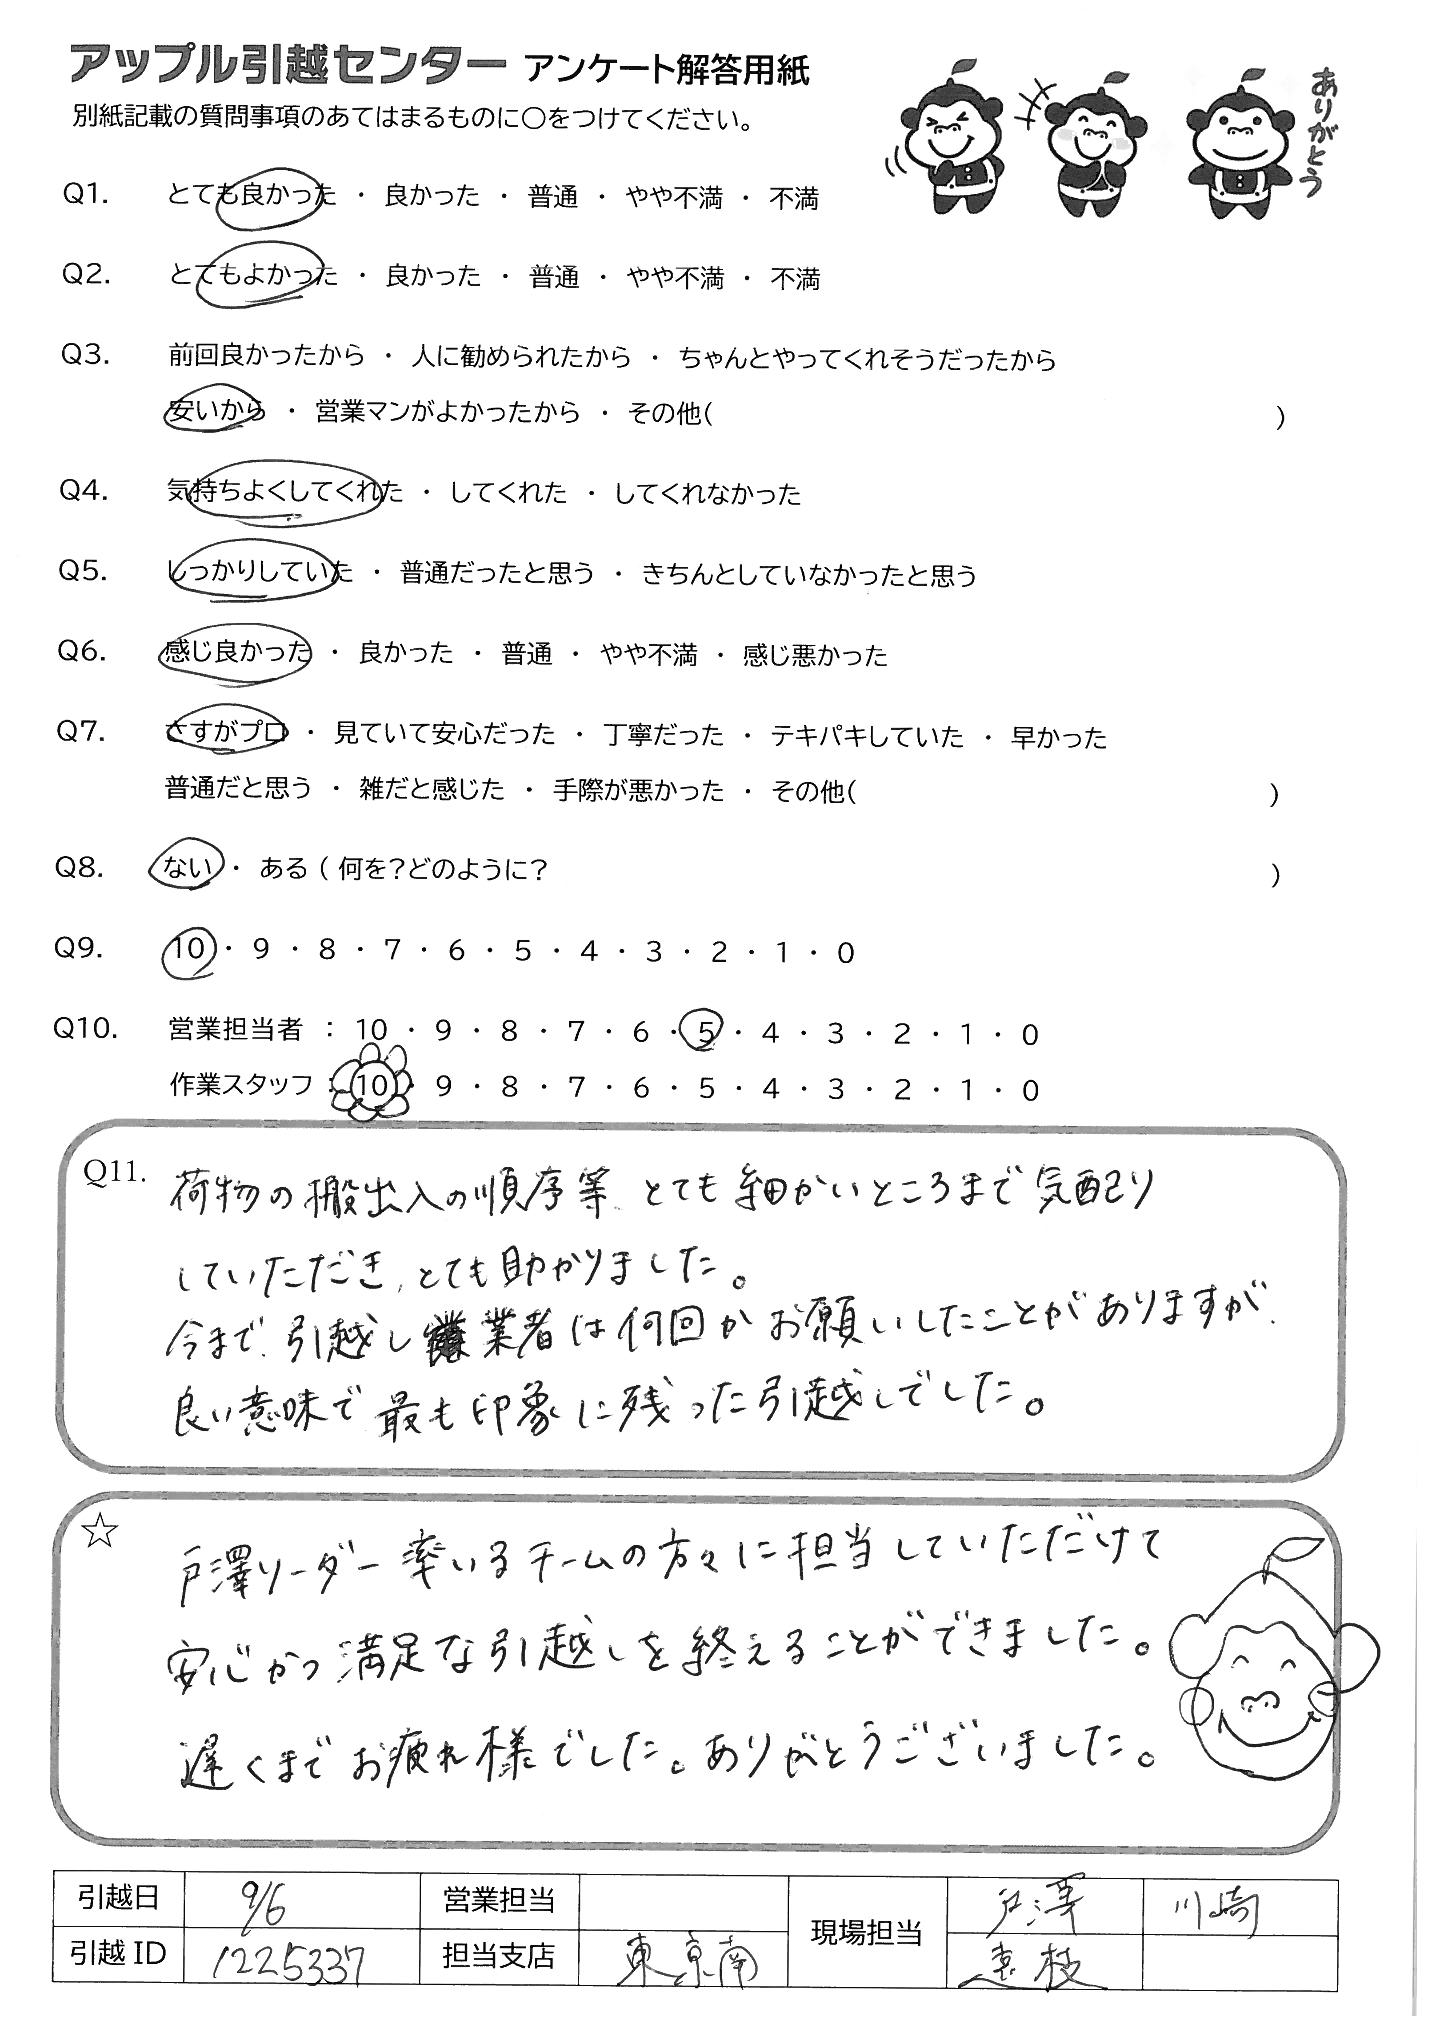 アップル引越センター アンケート解答用紙
別紙記載の質問事項のあてはまるものに○をつけてください。
ありがとう
Q1. とても良かった ・ 良かった ・ 普通 ・ やや不満 ・ 不満
Q2. とてもよかった ・ 良かった ・ 普通 ・ やや不満 ・ 不満
Q3. 前回良かったから ・ 人に勧められたから ・ ちゃんとやってくれそうだったから
安いから ・ 営業マンがよかったから ・ その他( )
Q4. 気持ちよくしてくれた ・ してくれた ・ してくれなかった
Q5. しっかりしていた ・ 普通だったと思う ・ きちんとしていなかったと思う
Q6. 感じ良かった ・ 良かった ・ 普通 ・ やや不満 ・ 感じ悪かった
Q7. さすがプロ ・ 見ていて安心だった ・ 丁寧だった ・ テキパキしていた ・ 早かった
普通だと思う ・ 雑だと感じた ・ 手際が悪かった ・ その他( )
Q8. ない ・ ある ( 何を?どのように? )
Q9. 10 ・ 9 ・ 8 ・ 7 ・ 6 ・ 5 ・ 4 ・ 3 ・ 2 ・ 1 ・ 0
Q10. 営業担当者 : 10 ・ 9 ・ 8 ・ 7 ・ 6 ・ 5 ・ 4 ・ 3 ・ 2 ・ 1 ・ 0
作業スタッフ : 10 ・ 9 ・ 8 ・ 7 ・ 6 ・ 5 ・ 4 ・ 3 ・ 2 ・ 1 ・ 0
Q11. 荷物の搬出入の順序等、とても細かいところまで気配り
していただき、とても助かりました。
今まで、引越し業者は何回かお願いしたことがありますが、
良い意味で最も印象に残った引越しでした。
☆ 戸澤リーダー率いるチームの方々に担当していただけて
安心かつ満足な引越しを終えることができました。
遅くまでお疲れ様でした。ありがとうございました。
引越日 9/6 営業担当 現場担当 戸澤 川崎
引越 ID 1225337 担当支店 東京南 遠枝